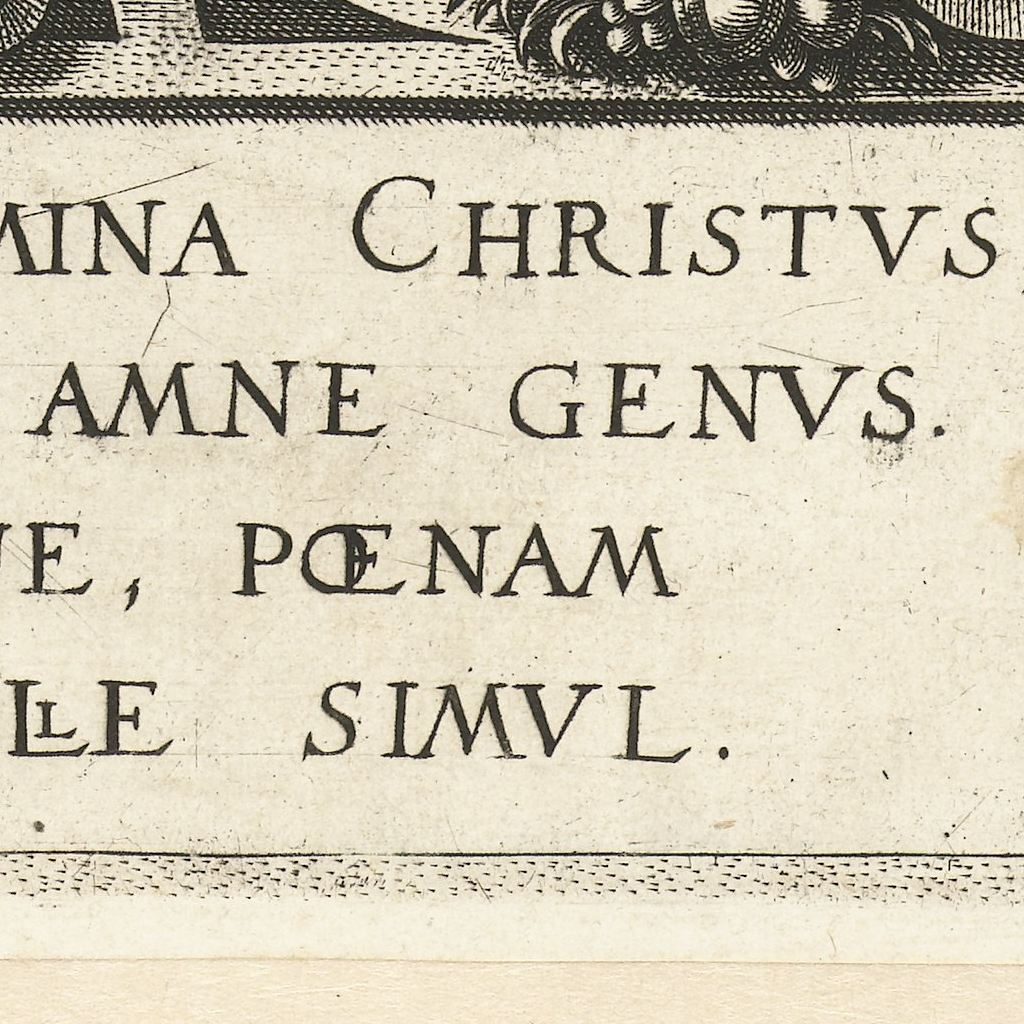 MINA CHRISTVS,
AMNE GENVS.
E, PŒNAM
LLE SIMVL.